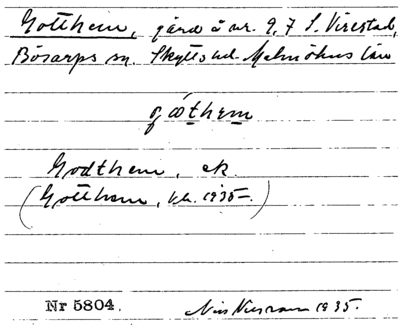 Gotthem, gård å nr. 9, 7 S. Virestad,
Bösarps sn. Skytts hd. Malmöhus län
gó̀them
Godthem, ek.
(Gotthem, kk. 1935-)
Nr 5804. Nils Nilsson 1935.